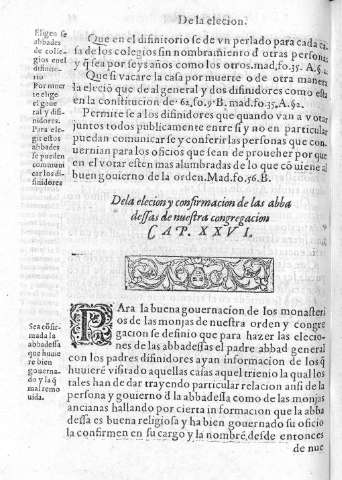 De la elecion.
Eligese
abbades
de cole-
gios enel
difinito-
rio
Por muer
te elige
el gene
ral y difi-
nidores.
Para ele-
gir estos
abbades
se pueden
comuni
car los di-
finidores
Que en el difinitorio se de vn perlado para cada ca
sa de los colegios sin nombramiẽto đ otras personas
y q̃ sea por seys años como los otros. mad. fo. 35. A. §.2.
Que si vacare la casa por muerte o de otra manera
la elecciõ que de al general y dos difinidores como esta
en la constitucion de 62. fo. 9. B. mad. fo. 35. A. §2.
Permite se a los difinidores que quando van a votar
juntos todos publicamente entre si y no en particular
puedan comunicarse y conferir las personas que con-
uernian para los oficios que sean de proueher por que
en el votar esten mas alumbradas de lo que cõuiene al
buen gouierno de la orden. Mad. fo. 56. B.
De la elecion y confirmacion de las abba
dessas de nuestra congregacion
CAP. XXVI.
Sea cõfir-
mada la
abbadessa
que huuie
re bien
gouerna-
do y la q̃
mal remo
uida.
PAra la buena gouernacion de los monasteri
os de las monjas de nuestra orden y congre
gacion se definio que para hazer las elecio-
nes de las abbadessas el padre abbad general
con los padres difinidores ayan informacion de los q̃
huuierẽ visitado aquellas casas aquel trienio la qual los
tales han de dar trayendo particular relacion ansi de la
persona y gouierno đ la abbadessa como de las monjas
ancianas hallando por cierta informacion que la abba
dessa es buena religiosa y ha bien gouernado su oficio
la confirmen en su cargo y la nombrẽ, desde entonces
de nue